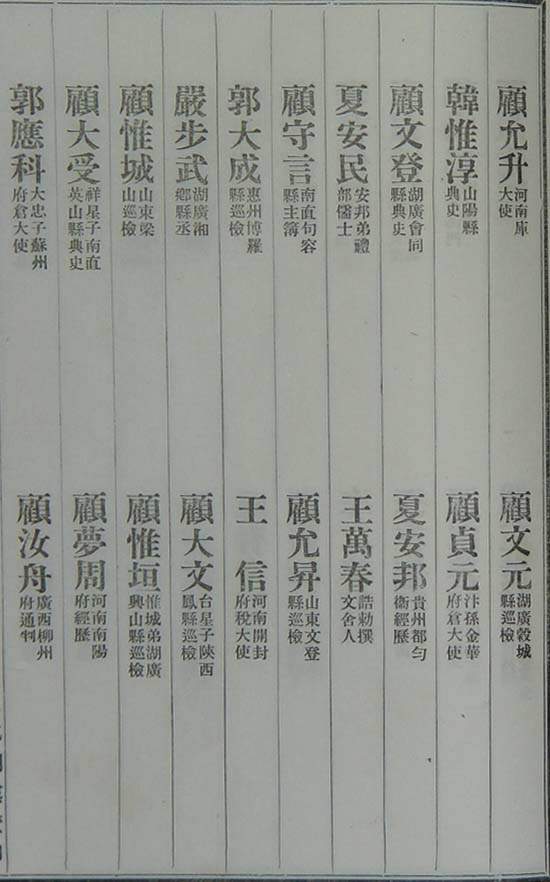 顧允升 河南庫大使
顧文元 湖廣穀城縣巡檢
韓惟淳 山陽縣典史
顧貞元 汴孫金華府倉大使
顧文登 湖廣會同縣典史
夏安邦 貴州都勻衞經歷
夏安民 安邦弟禮部儒士
王萬春 誥勅撰文舍人
顧守言 南直句容縣主簿
顧允昇 山東文登縣巡檢
郭大成 惠州博羅縣巡檢
王信 河南開封府稅大使
嚴步武 湖廣湘鄉縣丞
顧大文 台星子陝西鳳縣巡檢
顧惟城 山東梁山巡檢
顧惟垣 惟城弟湖廣興山縣巡檢
顧大受 祥星子南直英山縣典史
顧夢周 河南南陽府經歷
郭應科 大忠子蘇州府倉大使
顧汝舟 廣西柳州府通判